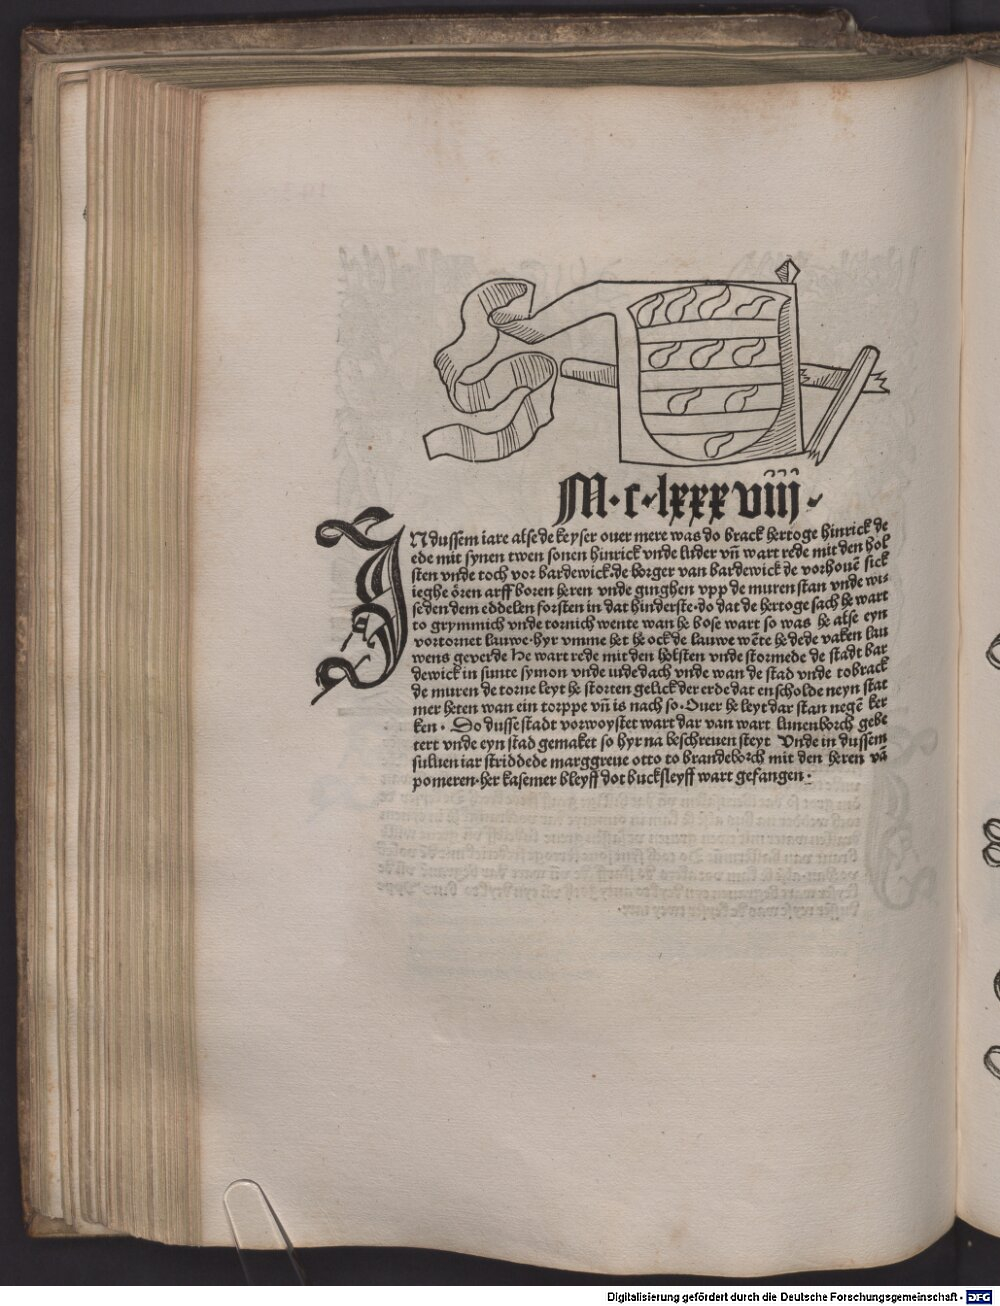 M·c·lxxxviiij·
INdussem iare alse de keyser ouer mere was do brack hertoge hinrick de
ede mit synen twen sonen hinrick vnde luder vn̄ wart rede mit den hol
sten vnde toch vor bardewick·de borger van bardewick de vorhouē sick
ieghe ōren arffboren heren vnde ginghen vpp de muren stan vnde wi-
seden dem eddelen forsten in dat hinderste·do dat de hertoge sach he wart
to grymmich vnde tornich wente wan he bose wart so was he alse eyn
vortornet lauwe·hyr vmme het he ock de lauwe wēte he dede vaken lau
wens geverde He wart rede mit den holsten vnde stormede de stadt bar
dewick in sunte symon vnde iude dach vnde wan de stad vnde tobrack
de muren de torne leyt he storten gelick der erde dat en scholde neyn stat
mer heten wan ein torppe vn̄ is nach so·Ouer he leyt dar stan negē ker
ken· So dusse stadt vorwoystet wart dar van wart lunenborch gebe
tert vnde eyn stad gemaket so hyr na beschreuen steyt Vnde in dussem
suluen iar striddede marggreue otto to brandeborch mit den heren vā
pomeren·her kasemer bleyff dot bucksleyff wart gefangen·
Digitalisierung gefördert durch die Deutsche Forschungsgemeinschaft - DFG